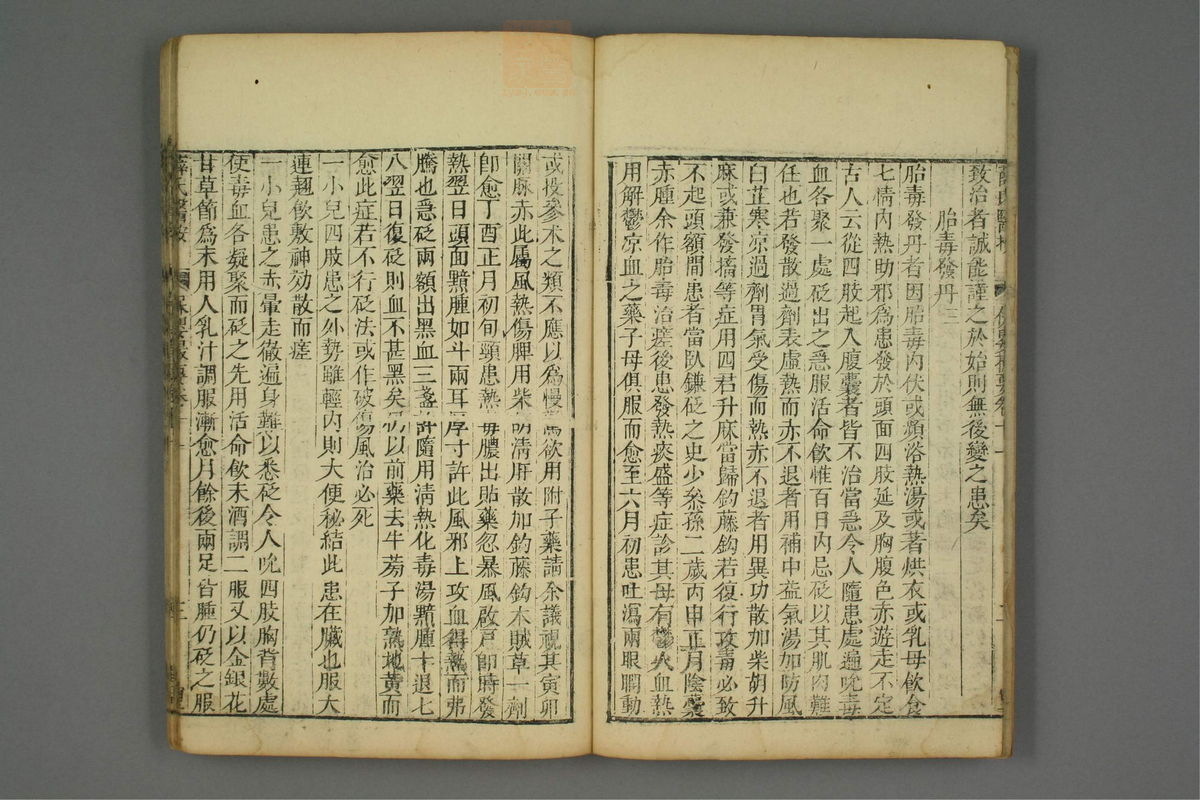 致治者誠能謹之於始則無後變之患矣
胎毒發丹三
胎毒發丹者因胎毒內伏或頻浴熱湯或著烘衣或乳母飲食
七情內熱助邪為患發於頭面四肢延及胸腹色赤遊走不定
古人云從四肢起入腹囊者皆不治當急令人隨患處遍吮毒
血各聚一處砭出之急服活命飲惟百日內忌砭以其肌肉難
任也若發散過劑表虛熱而赤不退者用補中益氣湯加防風
白芷寒凉過劑胃氣受傷而熱赤不退者用異功散加柴胡升
麻或兼發搐等症用四君升麻當歸釣藤鈎若復行攻毒必致
不起頭額間患者當臥鎌砭之史少叅孫二歲丙申正月陰囊
赤腫余作胎毒治瘥後患發熱痰盛等症診其母有鬱火血熱
用解鬱凉血之藥子母俱服而愈至六月初患吐瀉兩眼瞤動
或投參术之類不應以為慢驚欲用附子藥請余議視其寅卯
關脉赤此屬風熱傷脾用柴胡清肝散加釣藤鈎木賊草一劑
卽愈丁酉正月初旬頸患熱毒膿出貼藥忽暴風啟戸卽時發
熱翌日頭面黯腫如斗兩耳厚寸許此風邪上攻血得熱而弗
騰也急砭兩額出黑血三盞許隨用清熱化毒湯黯腫十退七
八翌日復砭則血不甚黑矣仍以前藥去牛蒡子加熟地黄而
愈此症若不行砭法或作破傷風治必死
一小兒四肢患之外勢雖輕內則大便秘結此患在臟也服大
連翹飲敷神効散而瘥
一小兒患之赤暈走徹遍身難以悉砭令人吮四肢胸背數處
使毒血各凝聚而砭之先用活命飲末酒調二服又以金銀花
甘草節為末用人乳汁調服漸愈月餘後兩足皆腫仍砭之服
薛氏醫按